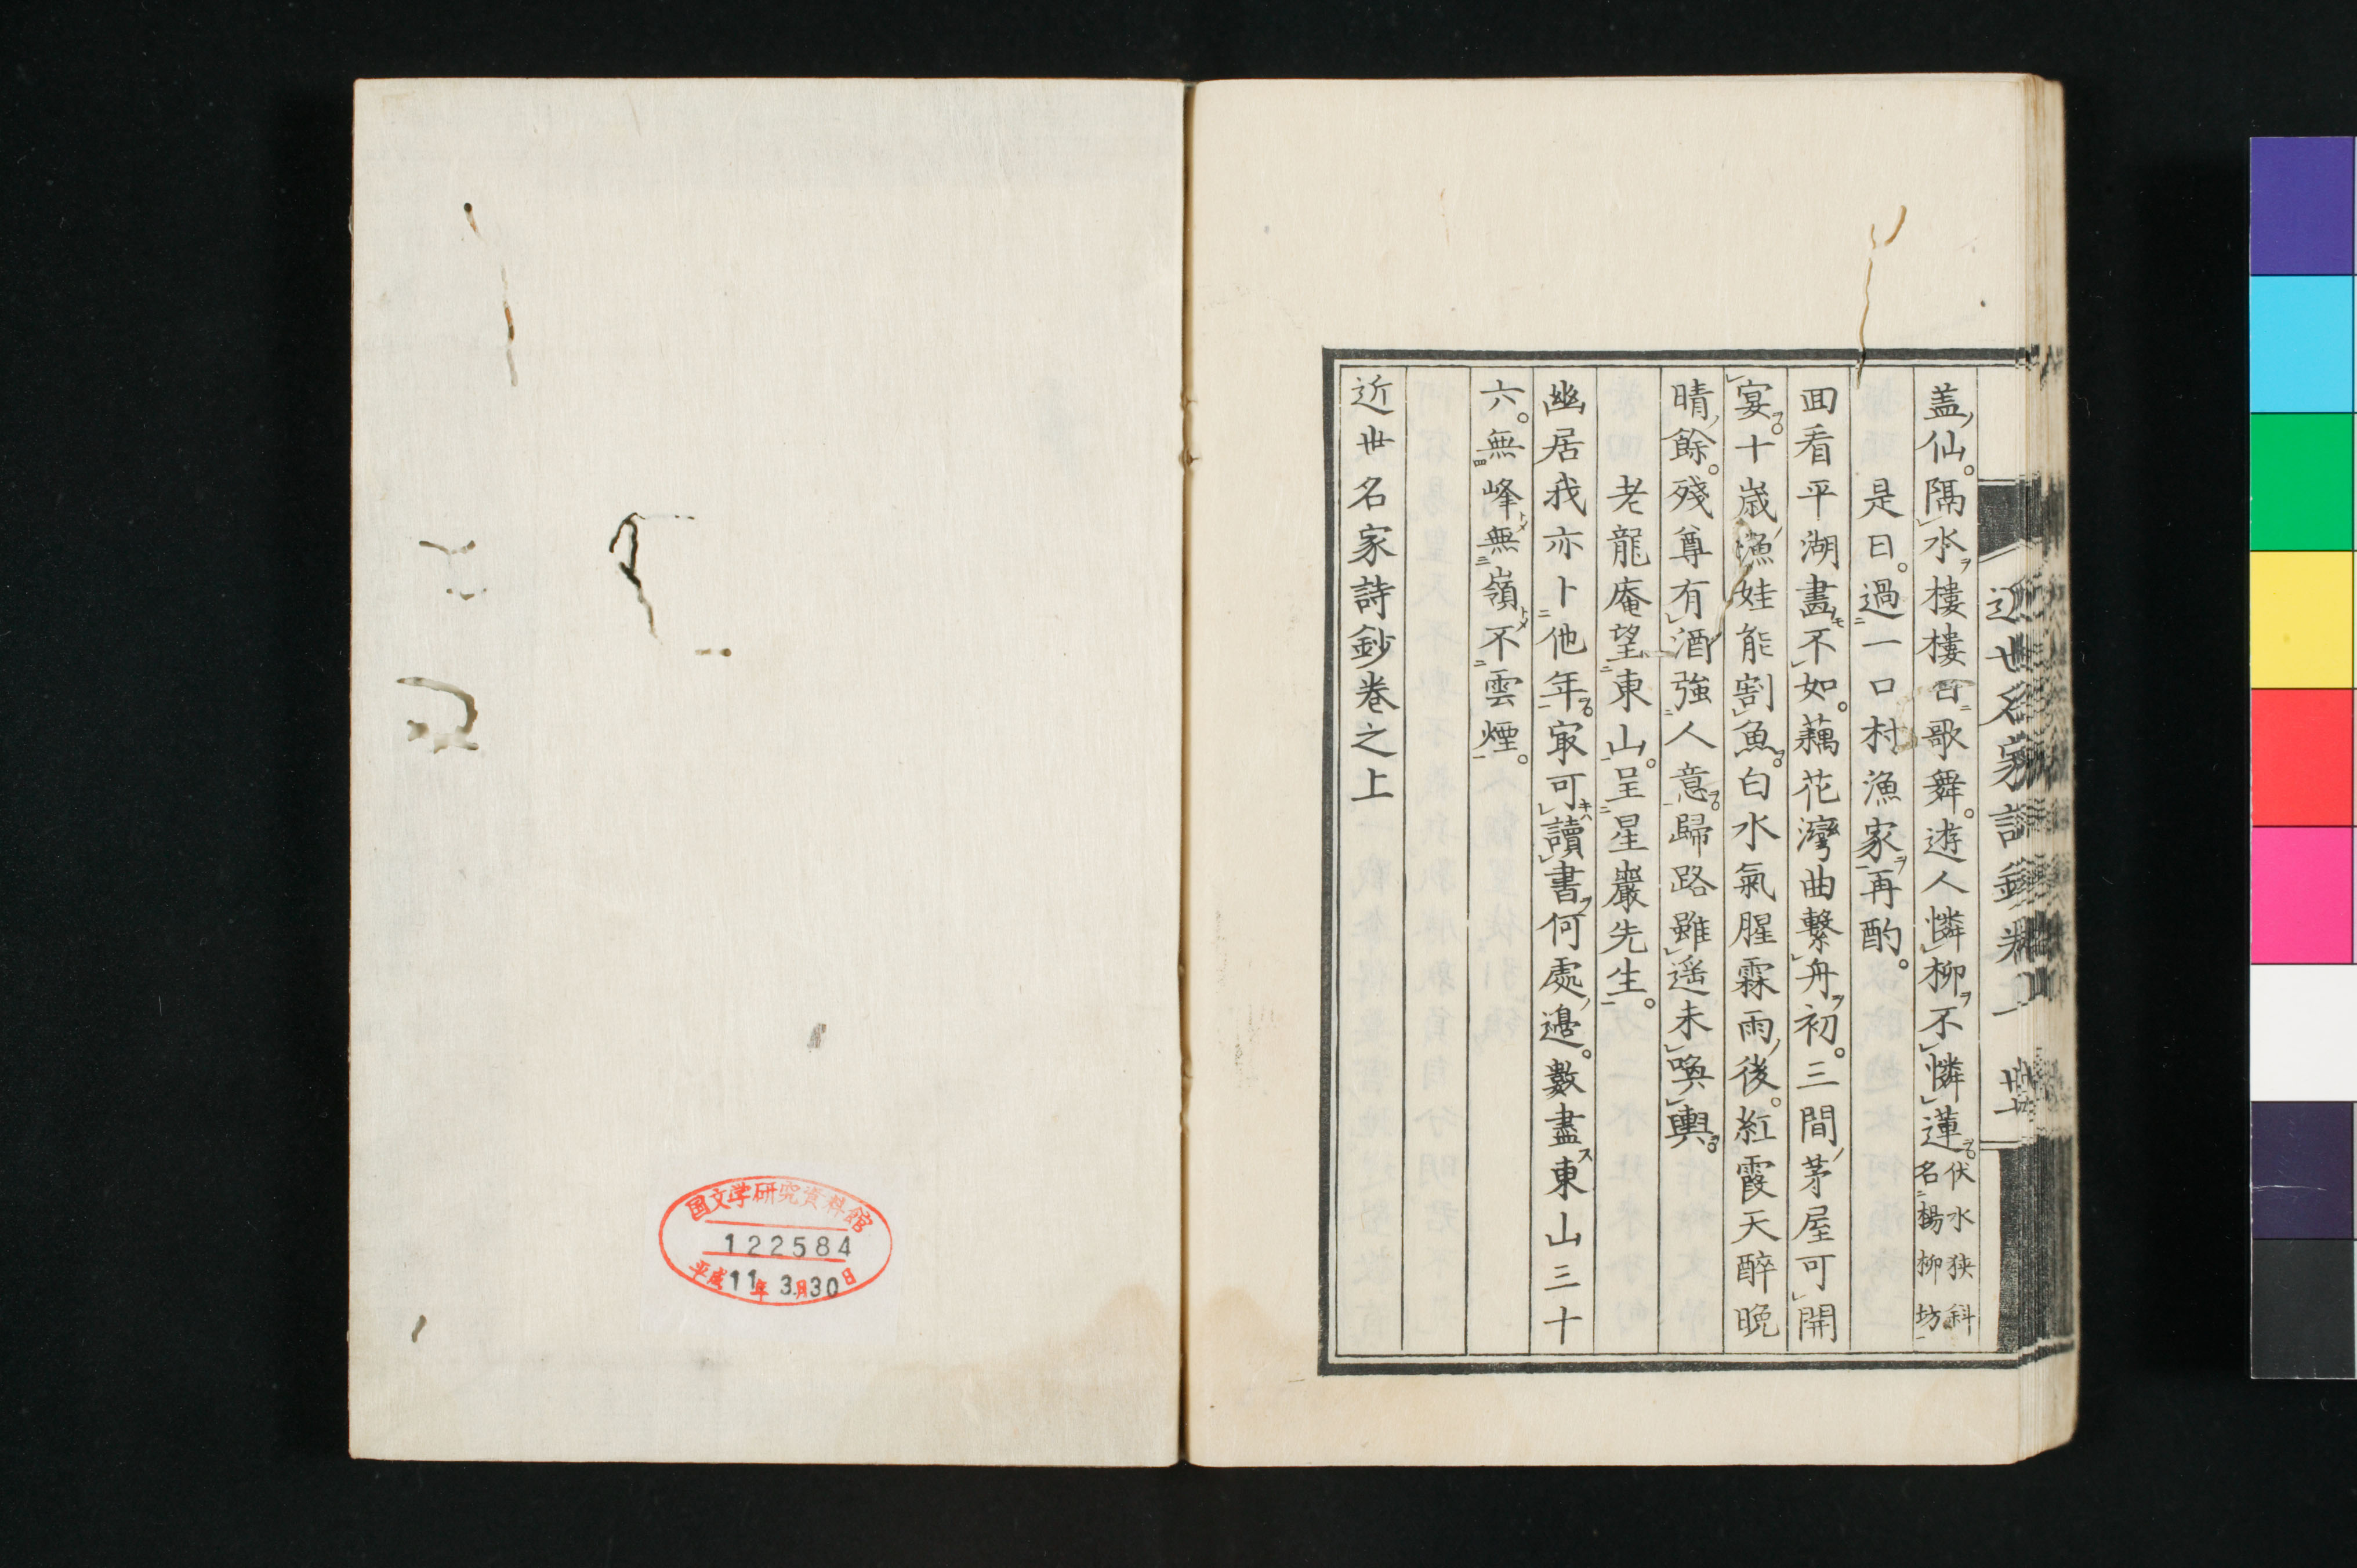 近世名家詩鈔卷一 丗
盖仙。隔水樓樓歌舞。遊人憐柳不憐蓮。伏水狭斜名楊柳坊
是日。過一口村漁家再酌。
囬看平湖畵不如。藕花灣曲繋舟初。三間茅屋可開
宴。十歳漁娃能割魚。白水氣腥霖雨後。紅霞天醉晩
晴餘。殘尊有酒強人意。歸路雖遥未喚輿。
老龍庵望東山。呈星巖先生。
幽居我亦卜他年。㝡可讀書何處邊。數盡東山三十
六。無峰無嶺不雲煙。
近世名家詩鈔卷之上
国文学研究資料館
122584
平成11年3月30日